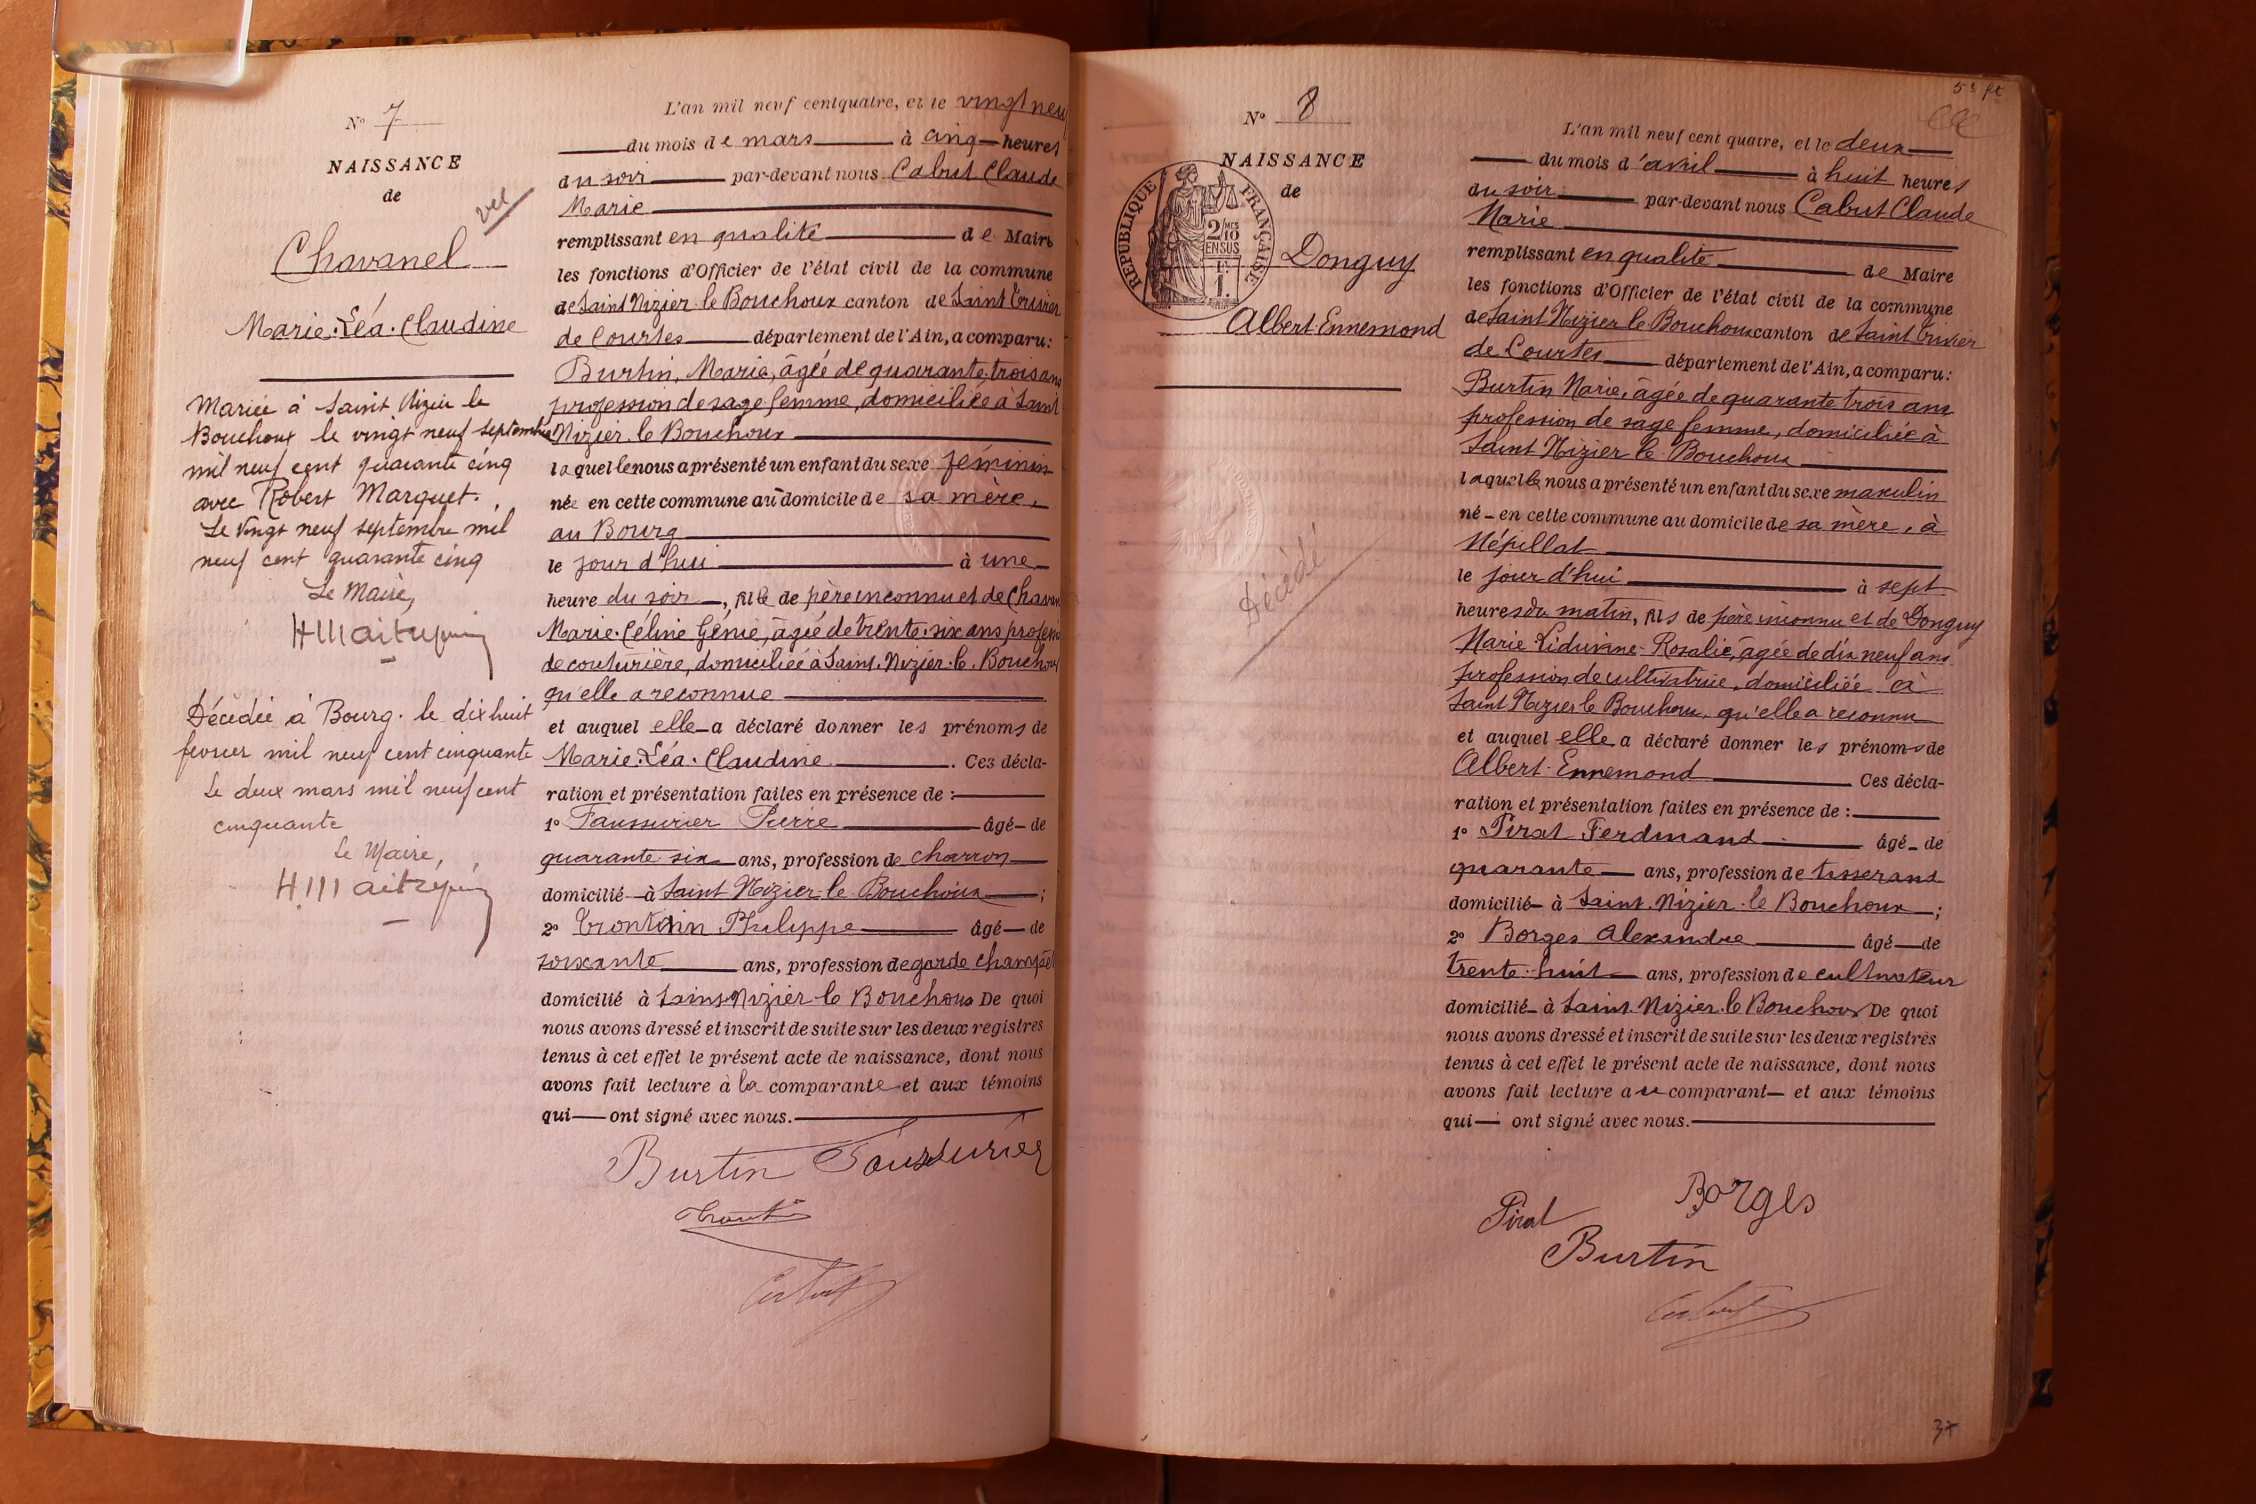 N° 7
NAISSANCE
de
Chavanel
Marie. Léa. Claudine
Mariée à Saint Nizier le
Bouchoux le vingt neuf septembre
mil neuf cent quarante cinq
avec Robert Marquet.
Le vingt neuf septembre mil
neuf cent quarante cinq
Le Maire,
Décédée à Bourg. le dix huit
février mil neuf cent cinquante
Le deux mars mil neuf cent
cinquante
Le Maire,
L'an mil neuf cent quatre, et le vingt neuf
du mois de mars à cinq heures
du soir par-devant nous Cabut Claude
Marie
remplissant en qualité de Maire
les fonctions d'Officier de l'état civil de la commune
de Saint Nizier le Bouchoux canton de Saint Trivier
de Courtes département de l'Ain, a comparu:
Burtin, Marie, âgée de quarante trois ans
profession de sage femme, domiciliée à Saint
Nizier le Bouchoux
laquelle nous a présenté un enfant du sexe féminin
née en cette commune au domicile de sa mère,
au Bourg
le jour d'hui à une
heure du soir, fille de père inconnu et de Chavanel
Marie. Céline Génie, âgée de trente. six ans profession
de couturière, domiciliée à Saint. Nizier. le. Bouchoux
qu'elle a reconnue
et auquel elle a déclaré donner les prénoms de
Marie. Léa. Claudine. Ces décla-
ration et présentation faites en présence de :
1° Faussurier Pierre âgé de
quarante six ans, profession de charron
domicilié à Saint Nizier le Bouchoux ;
2° Trontin Philippe âgé de
soixante ans, profession de garde champêt
domicilié à Saint Nizier le Bouchoux De quoi
nous avons dressé et inscrit de suite sur les deux registres
tenus à cet effet le présent acte de naissance, dont nous
avons fait lecture à la comparante et aux témoins
qui ont signé avec nous.
Burtin Faussurier
Cabut
5e ft
N° 8
NAISSANCE
de
REPUBLIQUE FRANÇAISE
2/10 EN SUS
Donguy
Albert Ennemond
Décédé
L'an mil neuf cent quatre, et le deux
du mois d'avril à huit heures
du soir par-devant nous Cabut Claude
Marie
remplissant en qualité de Maire
les fonctions d'Officier de l'état civil de la commune
de Saint Nizier le Bouchoux canton de Saint Trivier
de Courtes département de l'Ain, a comparu:
Burtin Marie, âgée de quarante trois ans
profession de sage femme, domiciliée à
Saint Nizier le Bouchoux
laquelle nous a présenté un enfant du sexe masculin
né en cette commune au domicile de sa mère, à
Népillat
le jour d'hui à sept
heures du matin, fils de père inconnu et de Donguy
Marie Liduvine Rosalie, âgée de dix neuf ans
profession de cultivatrice, domiciliée à
Saint Nizier le Bouchoux, qu'elle a reconnu
et auquel elle a déclaré donner les prénoms de
Albert Ennemond Ces décla-
ration et présentation faites en présence de :
1° Pirat Ferdinand âgé de
quarante ans, profession de tisserand
domicilié à Saint. Nizier. le Bouchoux ;
2° Borges Alexandre âgé de
trente. huit ans, profession de cultivateur
domicilié à Saint. Nizier. le Bouchoux De quoi
nous avons dressé et inscrit de suite sur les deux registres
tenus à cet effet le présent acte de naissance, dont nous
avons fait lecture au comparant et aux témoins
qui ont signé avec nous.
Pirat Borges
Burtin
Cabut
37